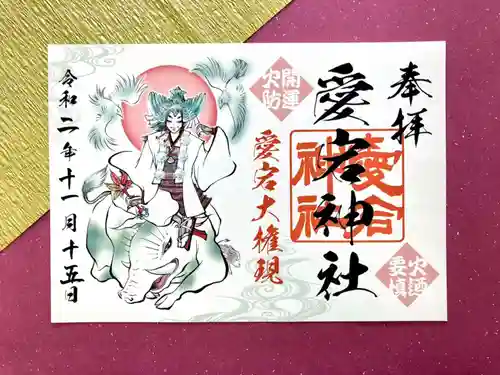 奉拝
開運
火防
愛宕神社
愛宕
神社
火廼
要慎
愛宕大権現
令和二年十一月十五日